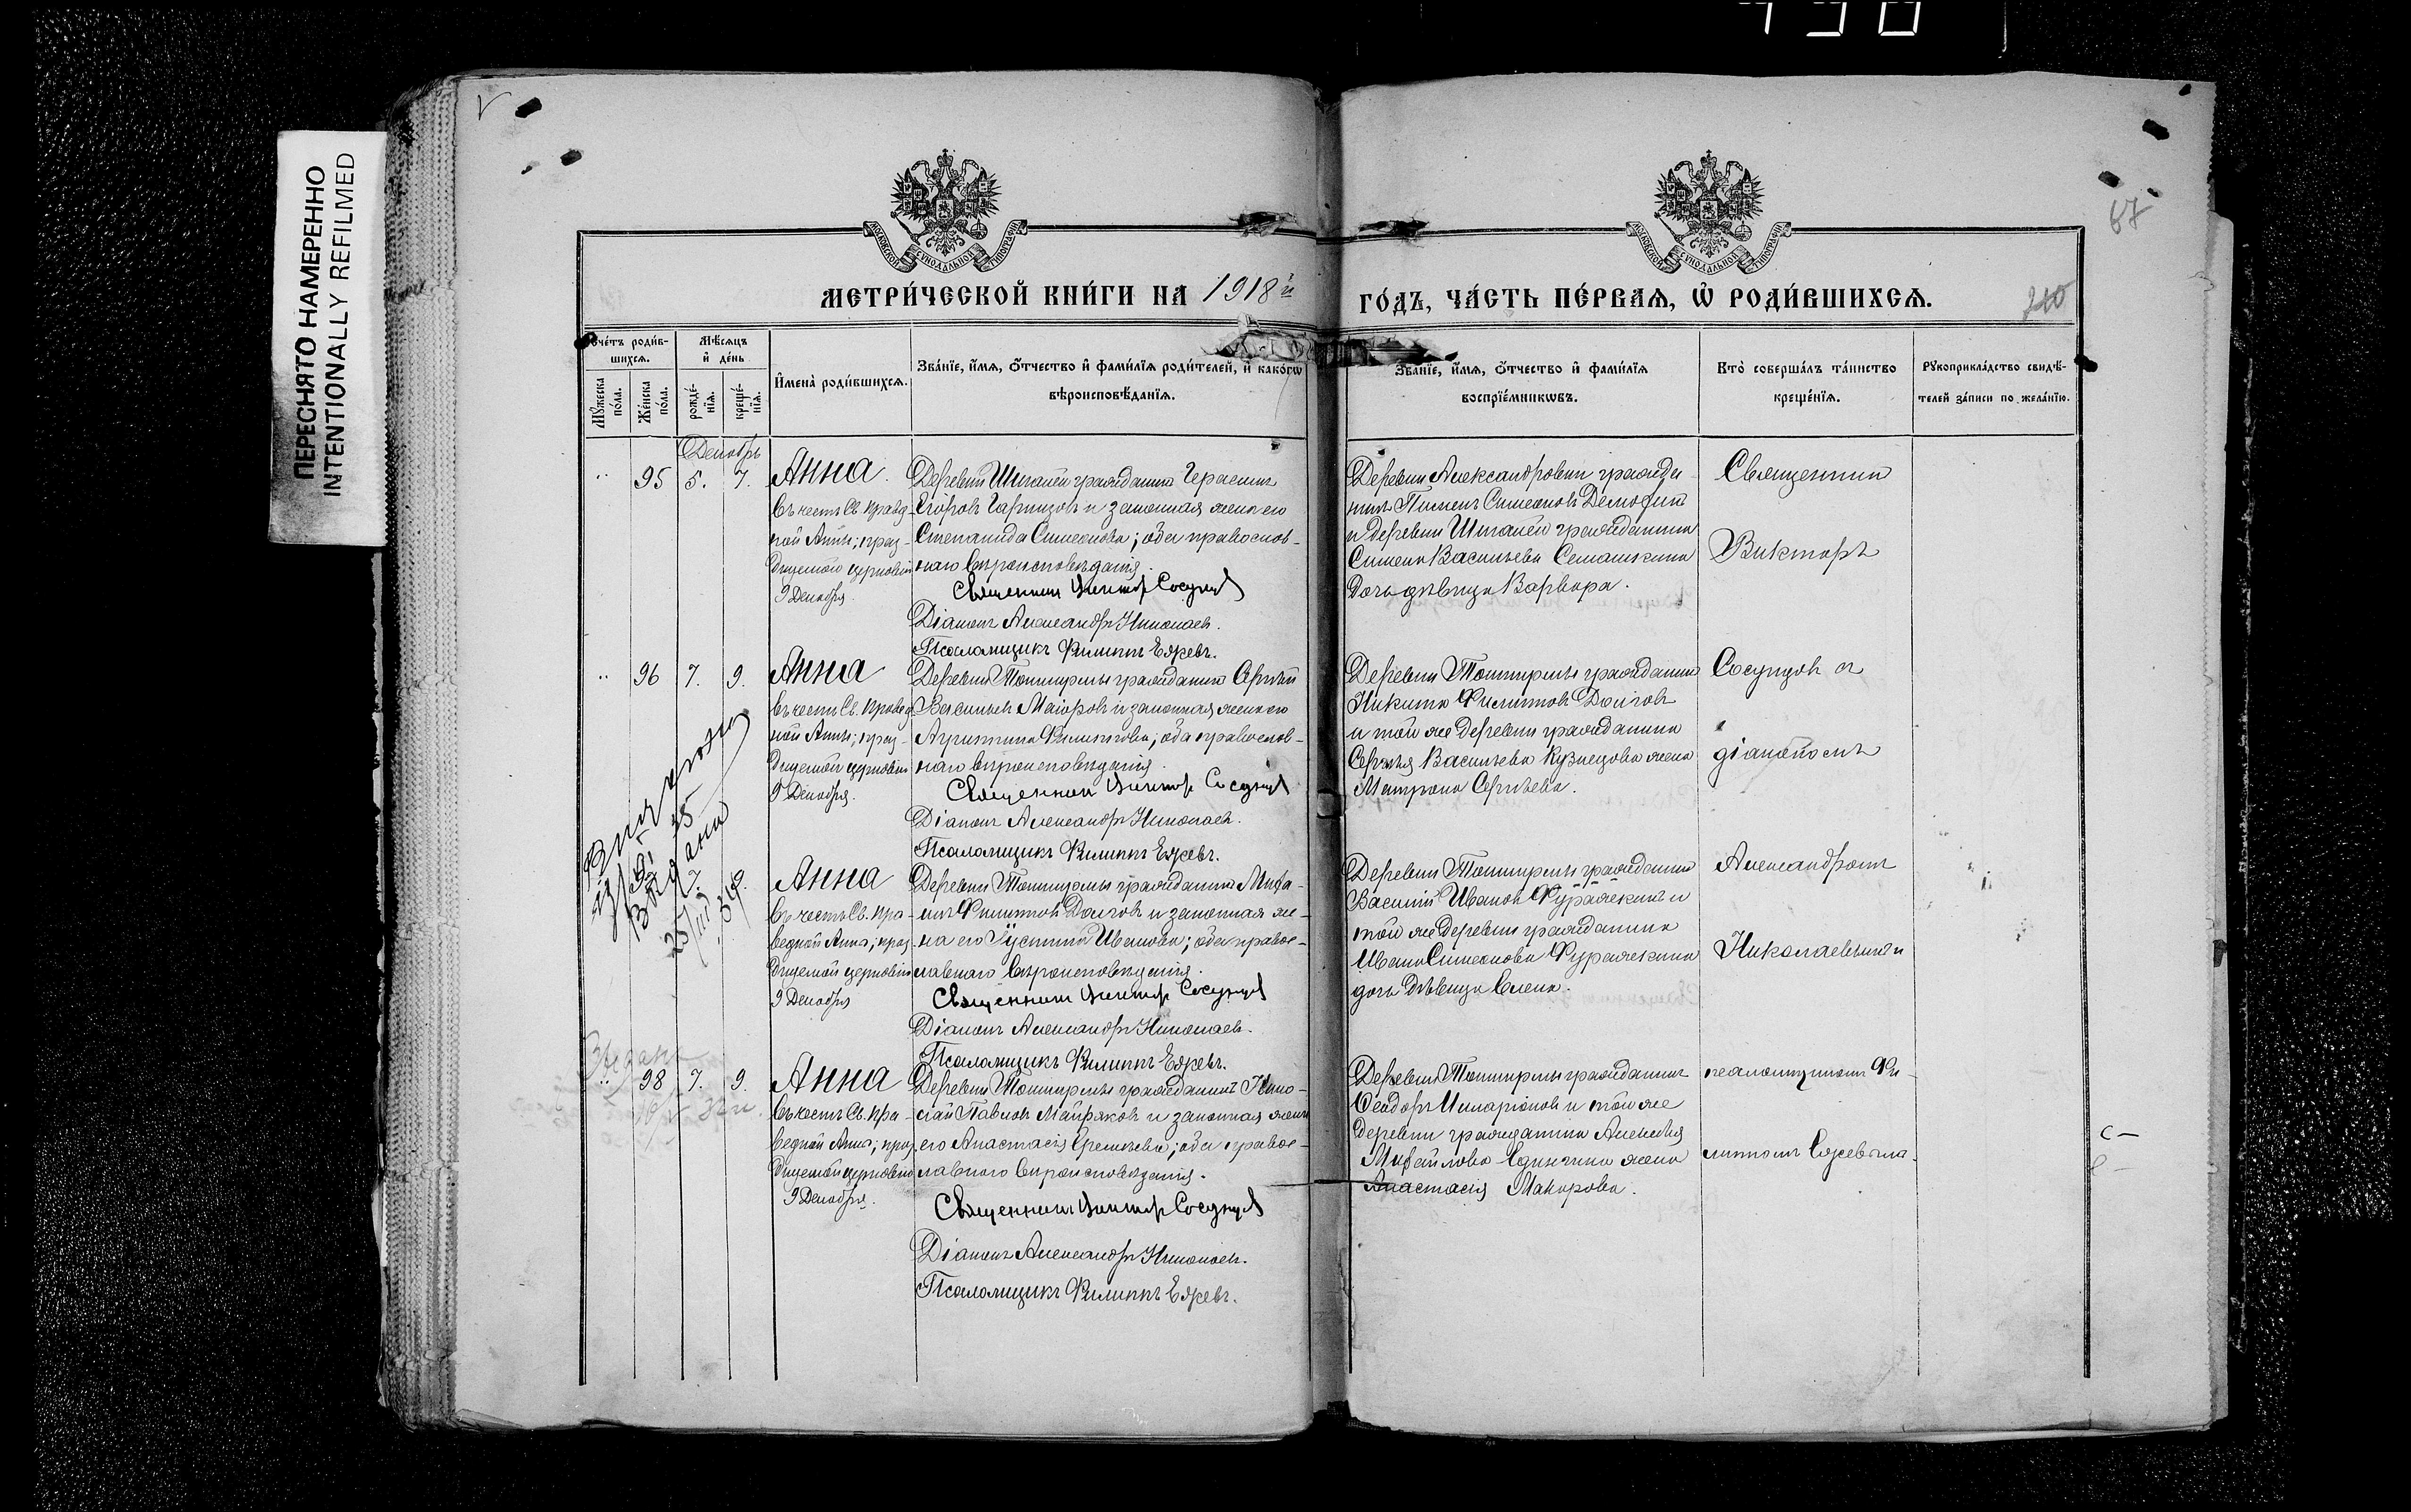 ПЕРЕСНЯТО НАМЕРЕННО
INTENTIONALLY REFILMED
67
МЕТРИ́ЧЕСКОЙ КНИ́ГИ НА 1918й
ГО́ДЪ, ЧА́СТЬ ПЕ́РВАѦ, Ѽ РОДИ́ВШИХСѦ.
210
Счетъ роди́в-
шихсѧ.
Мѣ́сѧцъ
и҆ де́нь
Мꙋ́жеска по́ла.
Же́нска по́ла.
рожде́-
нїѧ.
креще́-
нїѧ.
И҆мена̀ роди́вшихсѧ.
Зва́нїе, и҆́мѧ, ѻ҆́тчество и҆ фами́лїѧ роди́телей, и҆ како́гѡ
вѣроисповѣ́данїѧ.
Зва́нїе, и҆́мѧ, ѻ҆́тчество и҆ фами́лїѧ
воспрїе́мникѡвъ.
Кто̀ соверша́лъ та́инство
креще́нїѧ.
Рꙋкоприкла́дство свидѣ́-
телей за́писи по жела́нїю.
Декабрь
95 5. 7. Анна
въ честь Св. правед-
ной Анны; праз-
днуемой церковію
9 Декабря.
Деревни Шигалей гражданинъ Герасимъ
Егоровъ и законная жена его
Степанида Симеонова; оба православ-
наго вѣроисповѣданія.
Священникъ Викторъ Сосунцов
Діаконъ Александръ Николаевъ.
Псаломщикъ Филиппъ Ежевъ.
Деревни Александровки гражда-
нинъ Пименъ Симеоновъ
и деревни Шигалей гражданина
Симеона Васильева Семашкина
дочь дѣвица Варвара.
Священник
Викторъ
96 7. 9. Анна
въ честь Св. правед-
ной Анны; праз-
днуемой церковію
9 Декабря.
Деревни гражданинъ Сергѣй
Васильевъ Маіоровъ и законная жена его
Агриппина Филиппова; оба православ-
наго вѣроисповѣданія.
Священник Виктор Сосунцов
Діаконъ Александръ Николаевъ.
Псаломщикъ Филиппъ Ежевъ.
Деревни гражданинъ
Никита Филипповъ Долговъ
и той же деревни гражданина
Сергѣя Васильева Кузнецова жена
Матрона Сергѣева.
Сосунцов с
діакономъ
Анна
въ честь Св. пра-
ведной Анны; праз-
днуемой церковію
9 Декабря
Деревни гражданинъ Миха-
илъ Филипповъ Долговъ и законная же-
на его Іустина Иванова; оба правос-
лавнаго вѣроисповѣданія.
Священник Виктор Сосунцов
Діаконъ Александръ Николаевъ.
Псаломщикъ Филиппъ Ежевъ.
Деревни гражданинъ
Василій Ивановъ Фуражкинъ и
той же деревни гражданина
Ивана Симеонова Фуражкина
дочь дѣвица Елена.
Александромъ
Николаевымъ и
98 7. 9. Анна
въ честь Св. пра-
ведной Анны; праз-
днуемой церковію
9 Декабря.
Деревни гражданинъ Нико-
лай Павловъ и законная жена
его Анастасія; оба правос-
лавнаго вѣроисповѣданія.
Священникъ Виктор Сосунцов
Діаконъ Александръ Николаевъ.
Псаломщикъ Филиппъ Ежевъ.
Деревни гражданинъ
Ѳеодоръ Иларіоновъ и той же
деревни гражданина Алексѣя
Михайлова жена
Анастасія Макарова.
псаломщикомъ Фи-
липпомъ Ежевымъ.